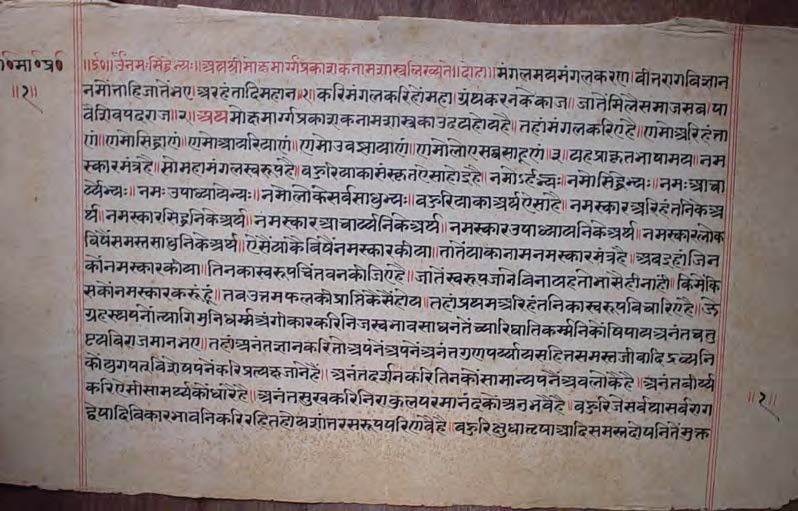 मो०मा०प्र०
॥१॥
॥६०॥ ॐनमःसिद्धेभ्यः॥अथश्रीमोक्षमार्ग्गप्रकाशकनामशास्त्रलिख्यते॥दोहा॥मंगलमयमंगलकरण।वीतरागविज्ञान
नमोंताहिजातेंभए॥अरहंतादिमहान॥१॥करिमंगलकरिहोंमहा।ग्रंथकरनकेकाज॥जातेंमिलैसमाजसब।पा
वैशिवपदराज॥२॥अथमोक्षमार्ग्गप्रकाशकनामशास्त्रकाउदयहोयहै॥तहांमंगलकरिएहै॥णमोअरिहंता
णं॥णमोसिद्धाणं॥णमोआयरियाणं॥णमोउवज्झायाणं॥णमोलोएसब्बसाहूणं॥३॥यहप्राकृतभाषामय।नम
स्कारमंत्रहै॥सोमहामंगलस्वरूपहै॥बहुरियाकासंस्कृतऐसाहोइहै॥नमोऽर्हद्भ्यः॥नमोसिद्धेभ्यः॥नमःआचा
र्य्येभ्यः॥नमःउपाध्यायेभ्यः॥नमोलोकेसर्वसाधुभ्यः॥बहुरियाकाअर्थऐसाहै॥नमस्कारअरिहंतनिकेअ
र्थ॥नमस्कारसिद्धनिकेअर्थ॥नमस्कारआचार्य्यनिकेअर्थ॥नमस्कारउपाध्यायनिकेअर्थ॥नमस्कारलोक
विषैंसमस्तसाधुनिकेअर्थ॥ऐसैंयाकैविषैंनमस्कारकीया॥तातेंयाकानामनमस्कारमंत्रहै॥अबइहांजिन
कोंनमस्कारकीया॥तिनकास्वरूपचिंतवनकीजिएहै॥जातेंस्वरूपजानेविनायहतोभासैहीनाहीं॥किमैंकि
सकोंनमस्कारकरूंहूं॥तबउत्तमफलकीप्राप्तिकैसेंहोय॥तहांप्रथमअरिहंतनिकास्वरूपविचारिएहै॥जे
ग्रहस्थपनोंत्यागिमुनिधर्म्मअंगीकारकरिनिजस्वभावसाधनतेंच्यारिघातिकर्म्मनिकोंषिपायअनंतचतु
ष्टयविराजमानभए॥तहांअनंतज्ञानकरितोअपनेंअपनेंअनंतगुणपर्य्यायसहितसमस्तजीवादिद्रव्यनि
कोंयुगपत्विशेषपनेंकरिप्रत्यक्षजानेंहैं॥अनंतदर्शनकरितिनकोंसामान्यपनेंअवलोकैहै॥अनंतवीर्य्य
करिऐसीसामर्थ्यकोंधारैहै॥अनंतसुखकरिनिराकुलपरमानंदकोंअनुभवैहै॥बहुरिजेसर्वथासर्वराग
द्वेषादिविकारभावनिकरिरहितहोयशांतरसरूपपरिणवैहै॥बहुरिक्षुधातृषाआदिसमस्तदोषनितेंमुक्त
॥१॥